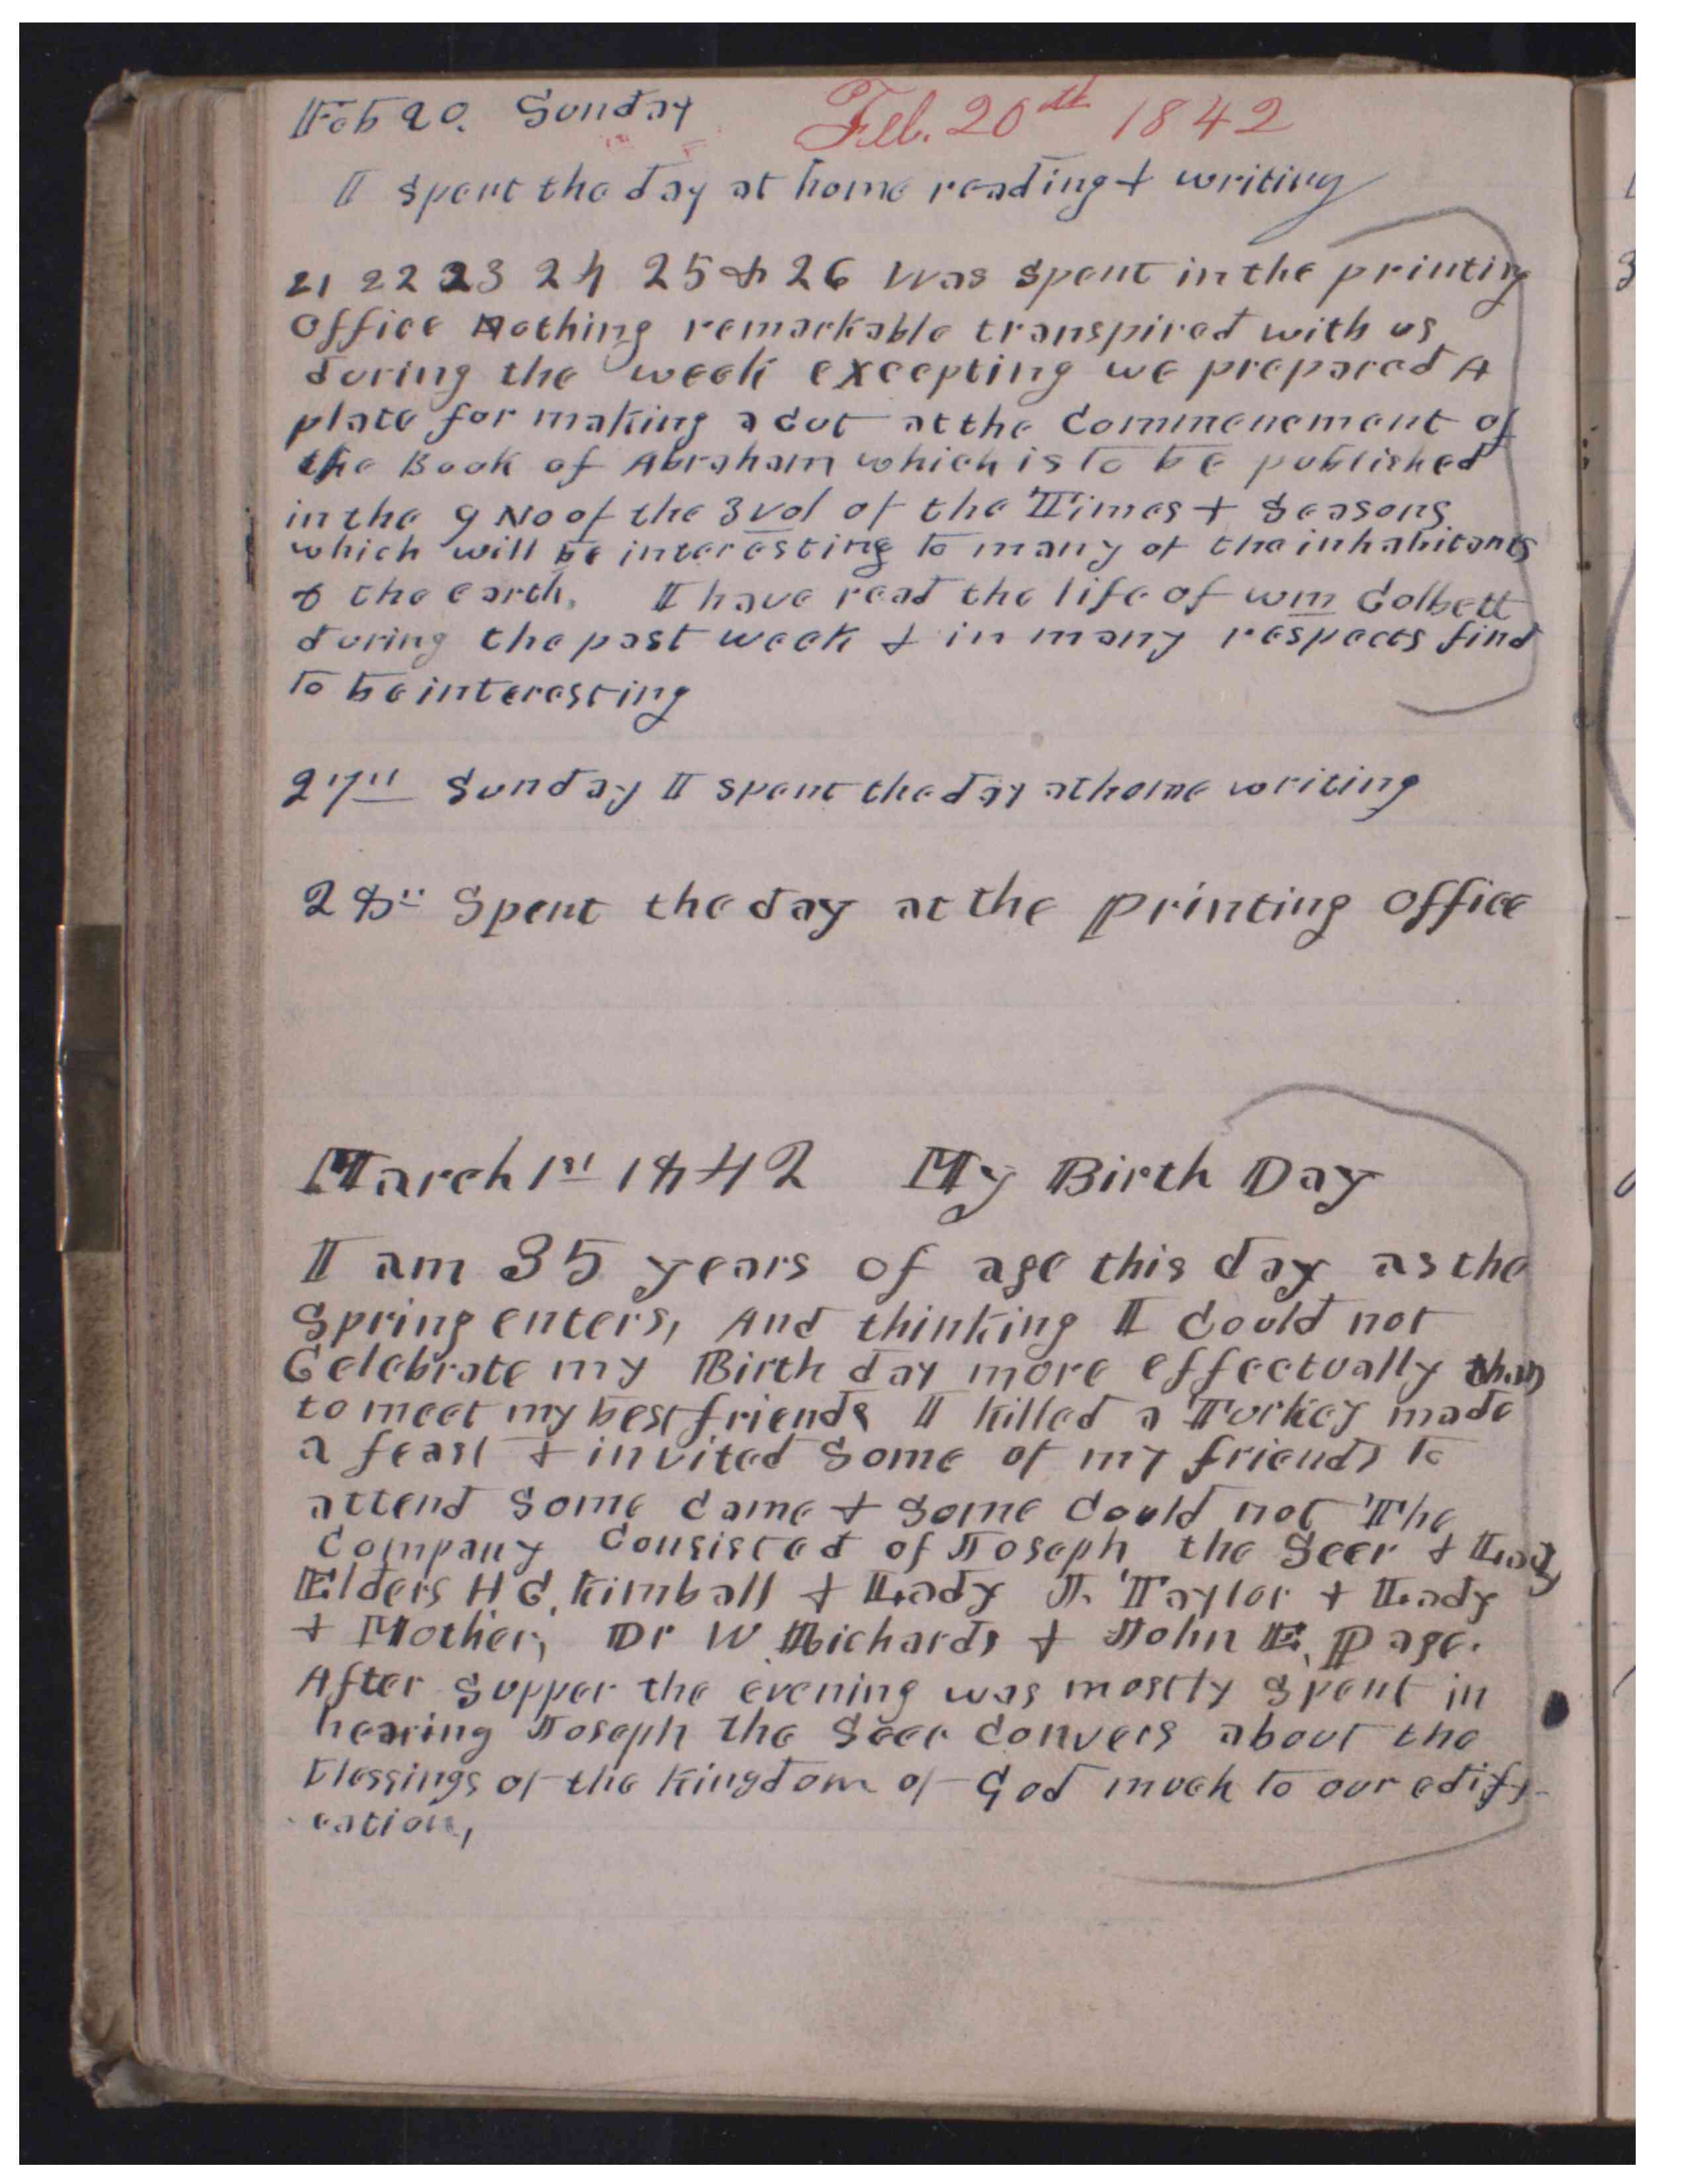 Feb 20. Sunday Feb. 20th 1842
I spent the day at home reading & writing
21 22 23 24 25 & 26 Was spent in the printing
office Nothing remarkable transpired with us
during the week excepting we prepared A
plate for making a cut at the Commencment of
the Book of Abraham which is to be published
in the 9 No of the 3 vol of the Times & Seasons
which will be interesting to many of the inhabitants
of the earth. I have read the life of Wm Colbett
during the past week & in many respects find
to be interesting
27th Sunday I spent the day at home writing
28th Spent the day at the printing office
March 1st 1842 My Birth Day
I am 35 years of age this day as the
Spring enters, And thinking I Could not
Celebrate my Birth day more effectually than
to meet my best friends I killed a Turkey made
a feast & invited Some of my friends to
attend Some Came & Some Could not The
Company Consisted of Joseph the Seer & Lady
Elders H C. Kimball & Lady J. Taylor & Lady
& Mother, Dr W. Richards & John E. Page.
After Supper the evening was mostly Spent in
hearing Joseph the Seer Convers about the
blessings of the Kingdom of God much to our edify-
cation,